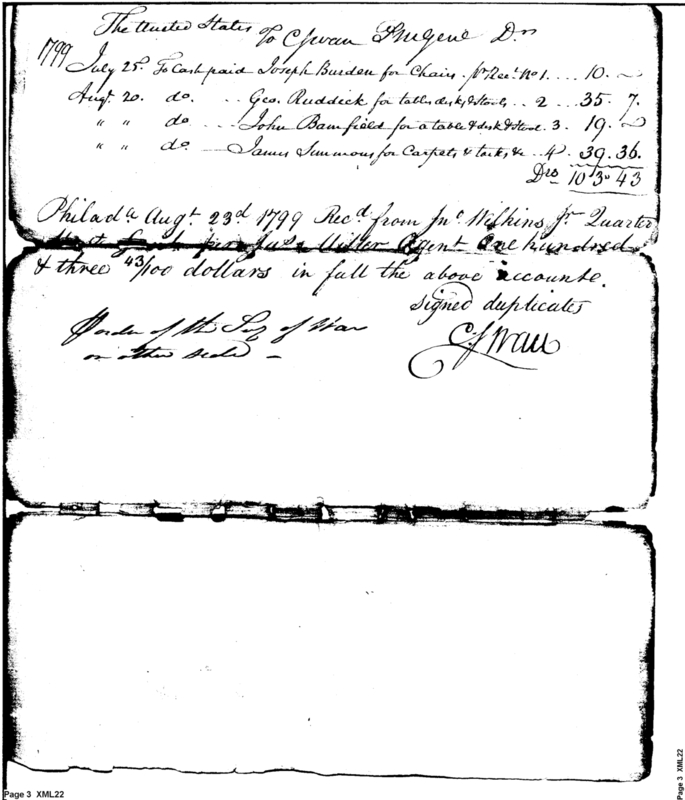 The United States To CSwan Dr
1799
July 25. To Cash paid Joseph Burden for Chairs. pr Rect. No 1 ... 10. ~
Augt. 20. do. .. Geo. Ruddick for table desk & stools .. 2 .. 35. 7.
" " do ... John Bamfield for a table & desk & stool. 3. 19. ~
" " do — James Simmons for Carpets & tacks & .. 4. 39. 36.
Drs 103. 43
Philada Augt 23d 1799 Recd from Jno Wilkins Jr Quarter
Miller Agent One hundred
& three 43/100 dollars in full the above accounte.
signed duplicates
CSwan
order of the Sey of War
on other side —
Page 3 XML22
Page 3 XML22